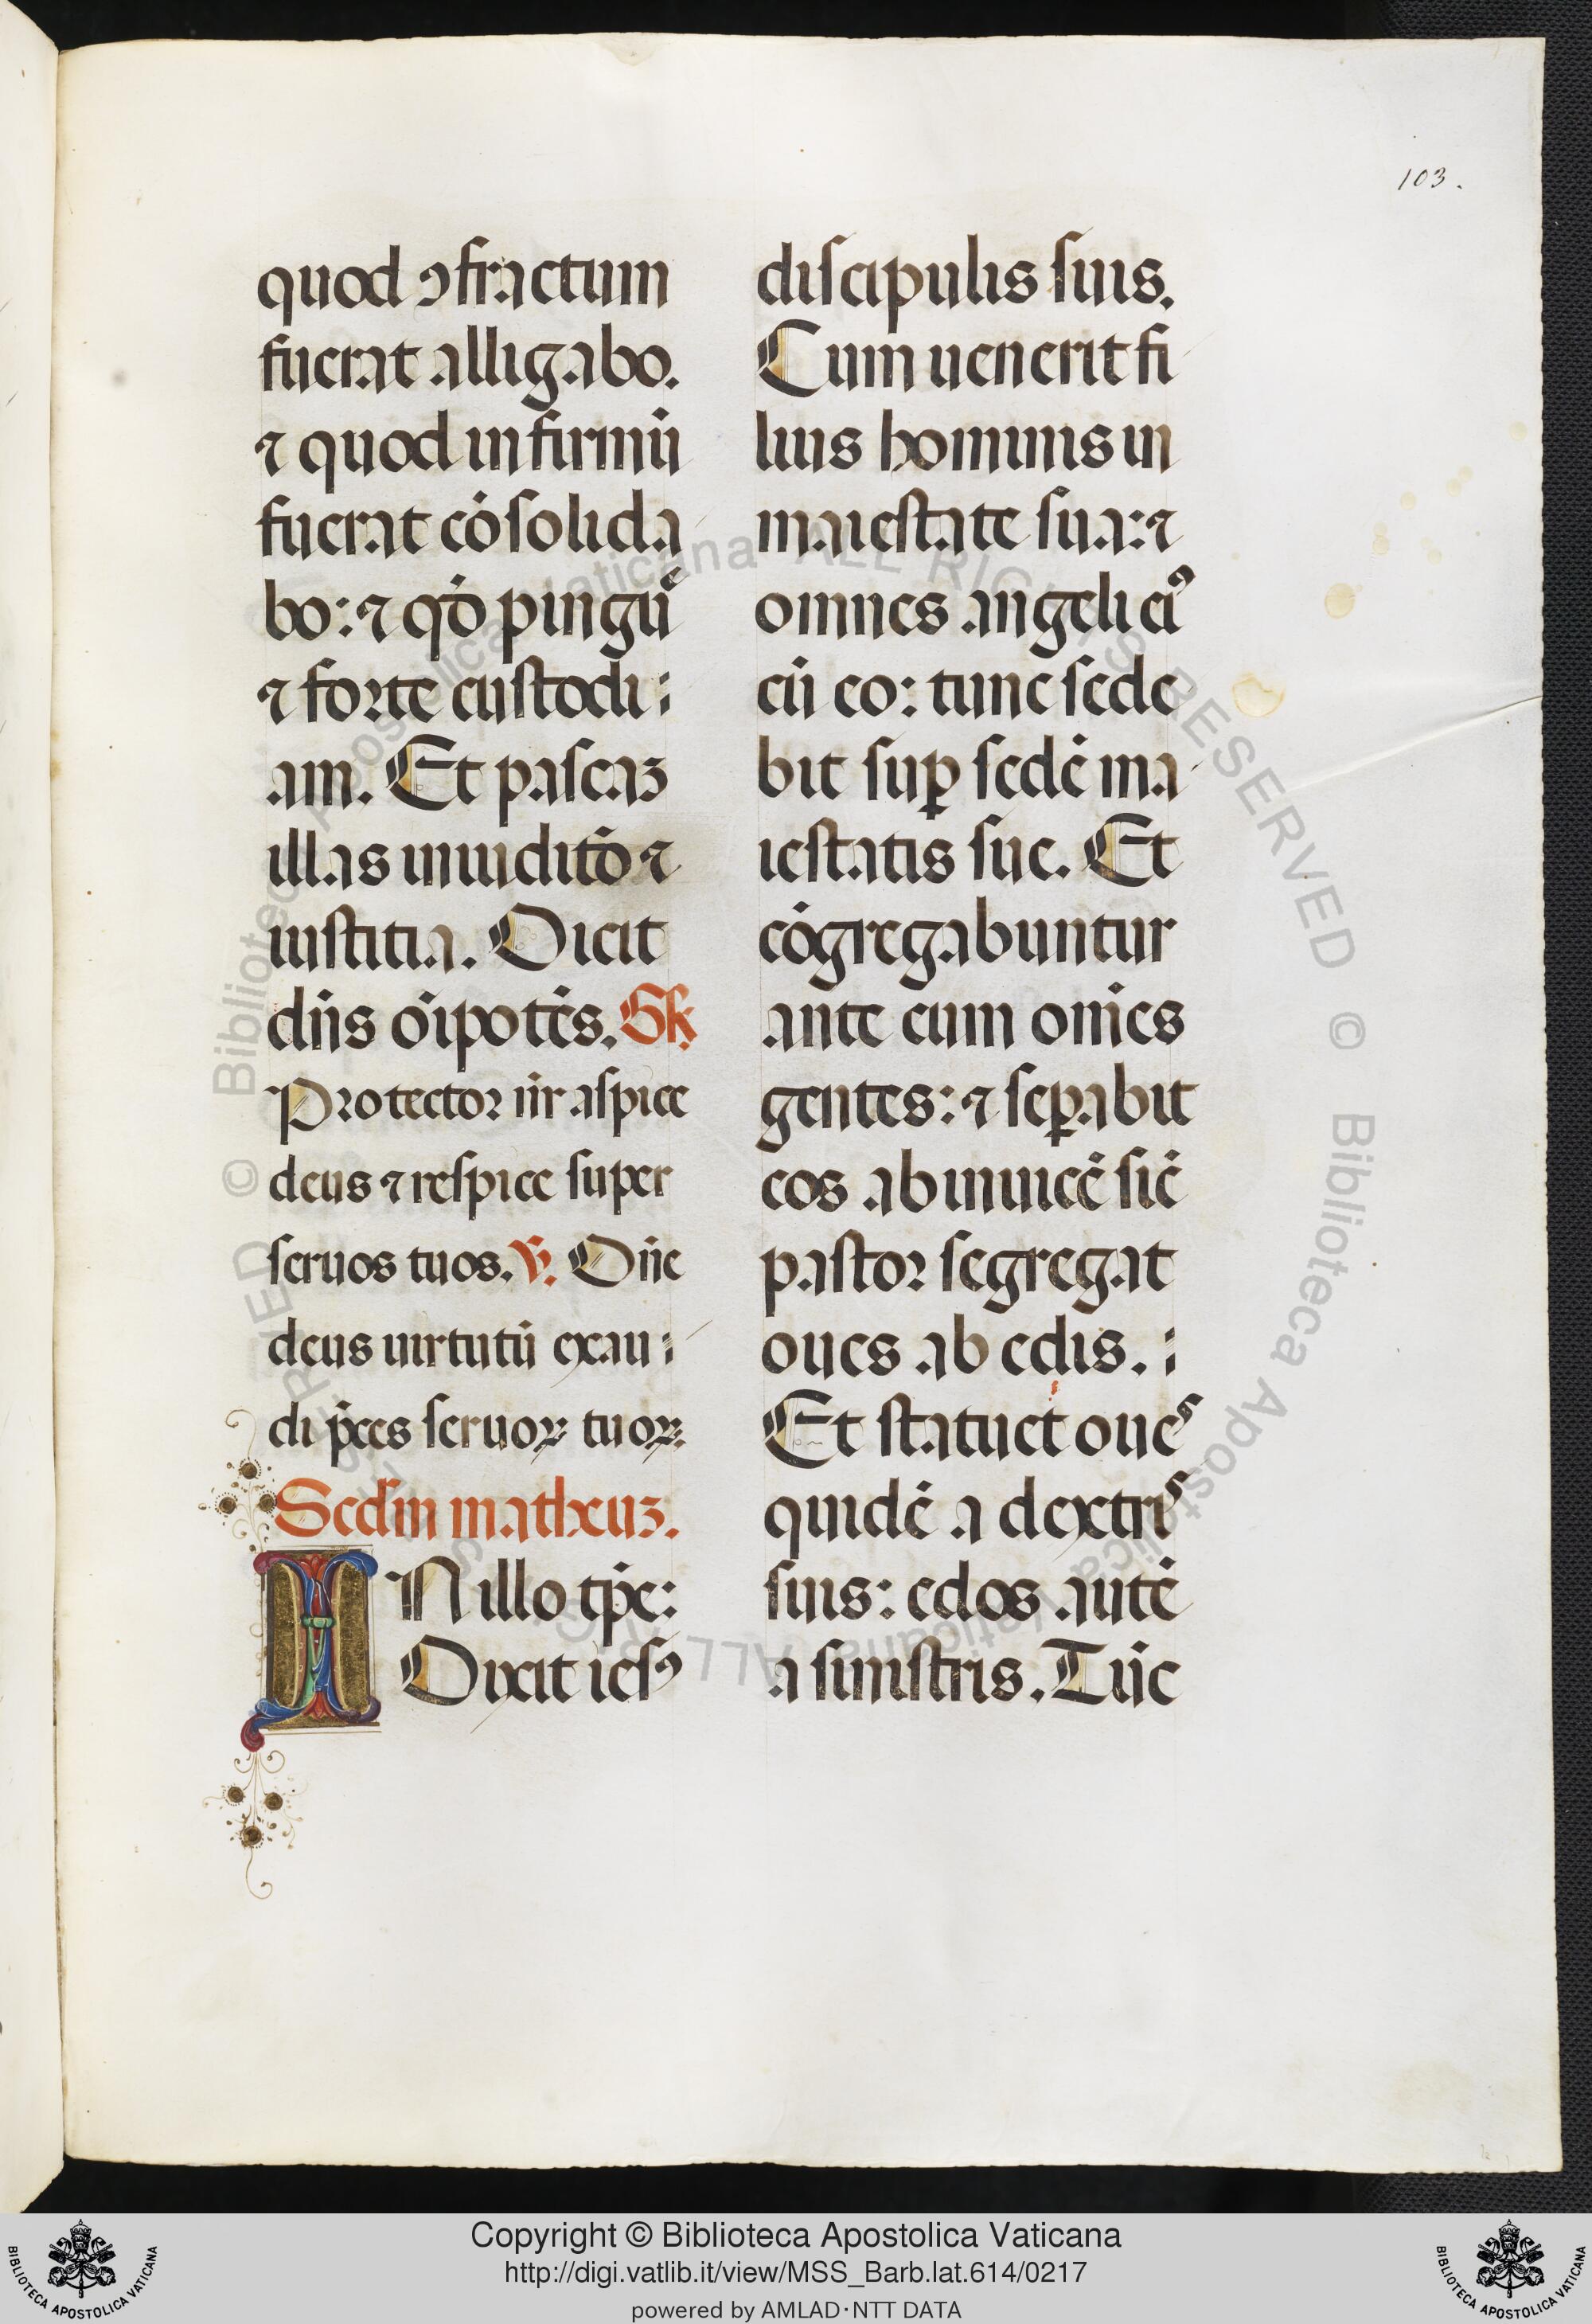 103.
quod ↄfractum
fuerat alligabo.
⁊ quod infirmū
fuerat cōsolida
bo: ⁊ qđ pinguͤ
⁊ forte custodi⸗
am. Et pascaꝫ
illas in iuditō ⁊
iustitia. Dicit
dn̄s oīpotēs. Gr̄.
Protector nr̄ aspice
deus ⁊ respice super
seruos tuos. ℣. Dn̄e
deus uirtutū exau⸗
di p̄ces seruoꝝ tuoꝝ.
Scd̄m matheuꝫ.
IN illo tp̄e:
Dixit iesꝰ
discipulis suis.
Cum uenerit fi
lius hominis in
maiestate sua: ⁊
omnes angeli eiꝰ
cū eo: tunc sede
bit suꝑ sedē ma
iestatis sue. Et
cōgregabuntur
ante eum om̄es
gentes: ⁊ seꝑabit
eos ab inuicē sic̄
pastor segregat
oues ab edis. ⸗
Et statuet oues
quidē a dextris
suis: edos autē
a sinistris. Tūc
© Biblioteca Apostolica Vaticana ALL RIGHTS RESERVED
Copyright © Biblioteca Apostolica Vaticana
http://digi.vatlib.it/view/MSS_Barb.lat.614/0217
powered by AMLAD·NTT DATA
BIBLIOTECA APOSTOLICA VATICANA
BIBLIOTECA APOSTOLICA VATICANA